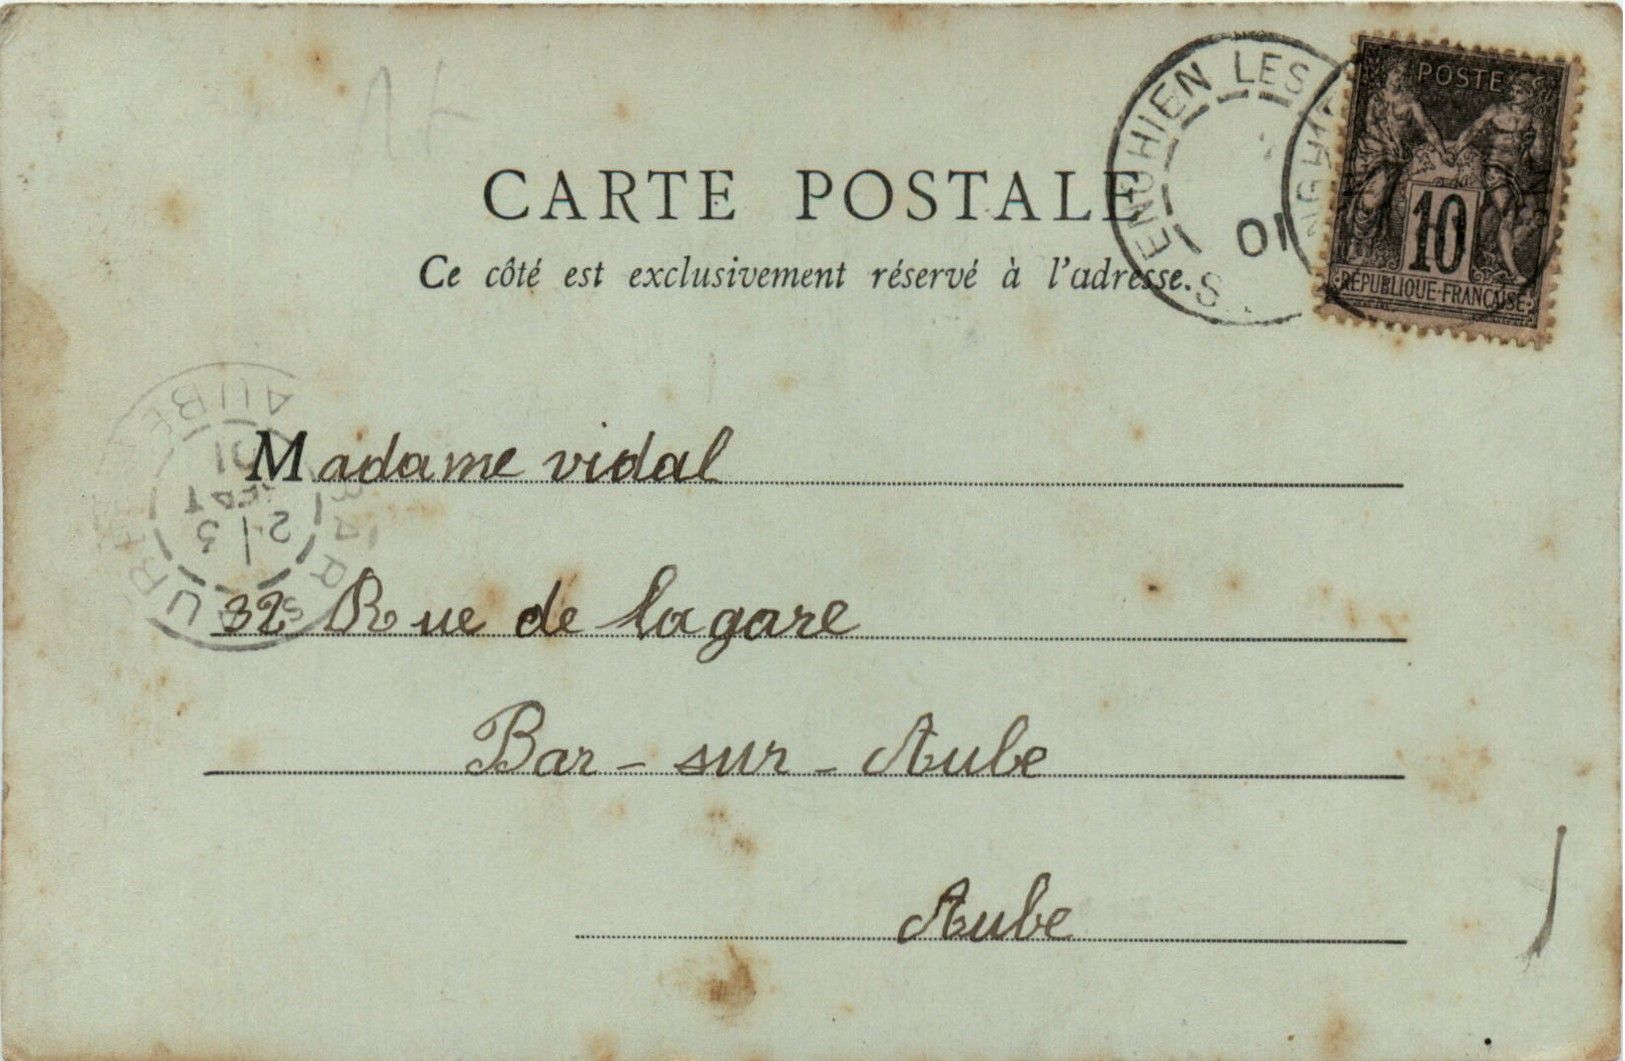 ENGHIEN LES
S
01
POSTE
10
RÉPUBLIQUE-FRANÇAISE
CARTE POSTALE
Ce côté est exclusivement réservé à l'adresse.
BAR S AUBE
AUBE
2 3
SEPT
01
Madame vidal
32 Rue de la gare
Bar-sur-Aube
Aube